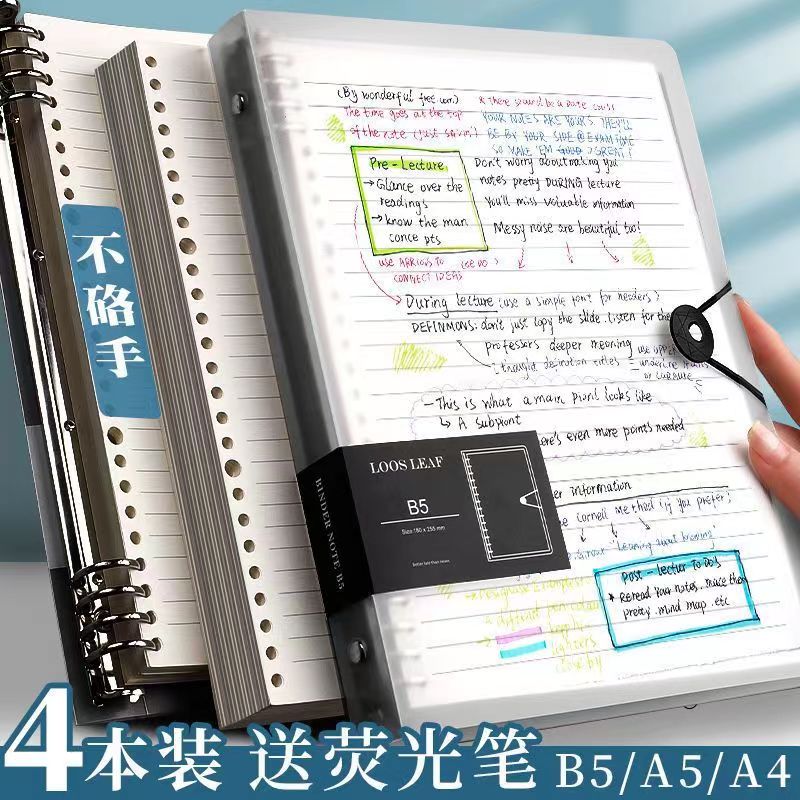 (By wonderful
The time goes at the top
of the note (just
* there should be a date
YOUR NOTES ARE YOURS. THEY'LL
BE BY YOUR SIDE @ EXAM TIME
SO MAKE EM GOOD GREAT!
Pre-Lecture
→ Glance over the
readings
→ know the man
conce pts
Don't worry about making you
notes pretty DURING lecture
You'll miss valuable information
Messy noise are beautiful too!
USE ARROWS TO
CONNECT IDEAS
During lecture (use a simple font for headers)
DEFINMONS: don't just lopy the slide. listen for the
professors deeper meaning
- This is what a main point looks like
↳ A subpiont
here's even more points needed
er information
e Cornell Method (if you prefer;
Post - lectur To Do's
Reread Your notes. mace them
pretty. mind map. etc
close by
不硌手
LOOS LEAF
B5
Size:180 x 255 mm
BINDER NOTE B5
4本装 送荧光笔 B5/A5/A4